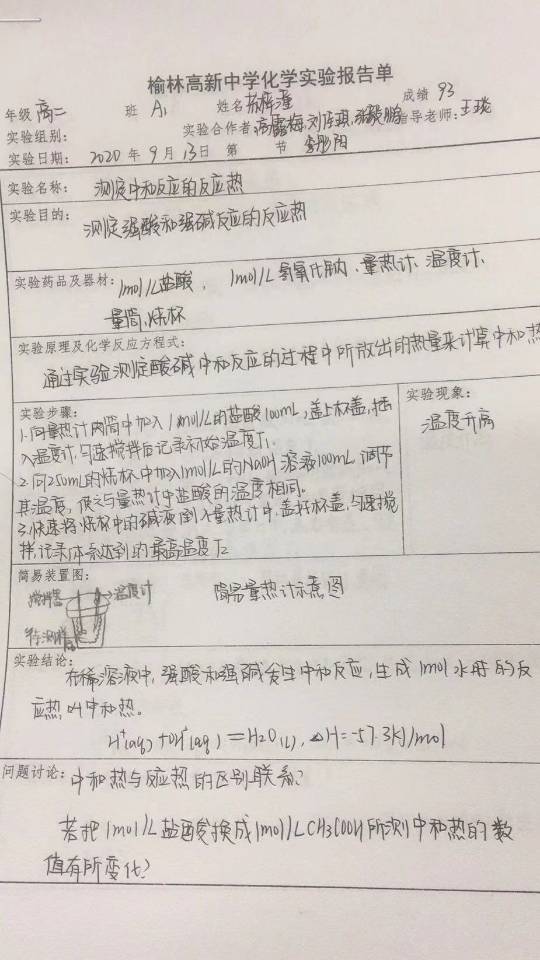 榆林高新中学化学实验报告单
年级 高二 班 A1 姓名 成绩 93
实验组别: 实验合作者: 指导老师: 王珑
实验日期: 2020 年 9 月 13 日 第 节
实验名称: 测定中和反应的反应热
实验目的:
测定强酸和强碱反应的反应热
实验药品及器材: 1mol/L盐酸、 1mol/L氢氧化钠、量热计、温度计、
量筒、烧杯
实验原理及化学反应方程式:
通过实验测定酸碱中和反应的过程中所放出的热量来计算中和热
实验步骤:
1.向量热计内筒中加入1mol/L的盐酸100mL,盖上杯盖,插
入温度计,匀速搅拌后记录初始温度T1.
2.向250mL的烧杯中加入1mol/L的NaOH溶液100mL,调节
其温度,使之与量热计中盐酸的温度相同。
3.快速将烧杯中的碱液倒入量热计中,盖好杯盖,匀速搅
拌,记录体系达到的最高温度T2
实验现象:
温度升高
简易装置图:
搅拌器 温度计 简易量热计示意图
实验结论:
在稀溶液中,强酸和强碱发生中和反应,生成1mol水时的反
应热叫中和热。
H⁺(aq)+OH⁻(aq)=H2O(l), △H=-57.3kJ/mol
问题讨论: 中和热与反应热的区别联系?
若把1mol/L盐酸换成1mol/LCH3COOH所测中和热的数
值有所变化?